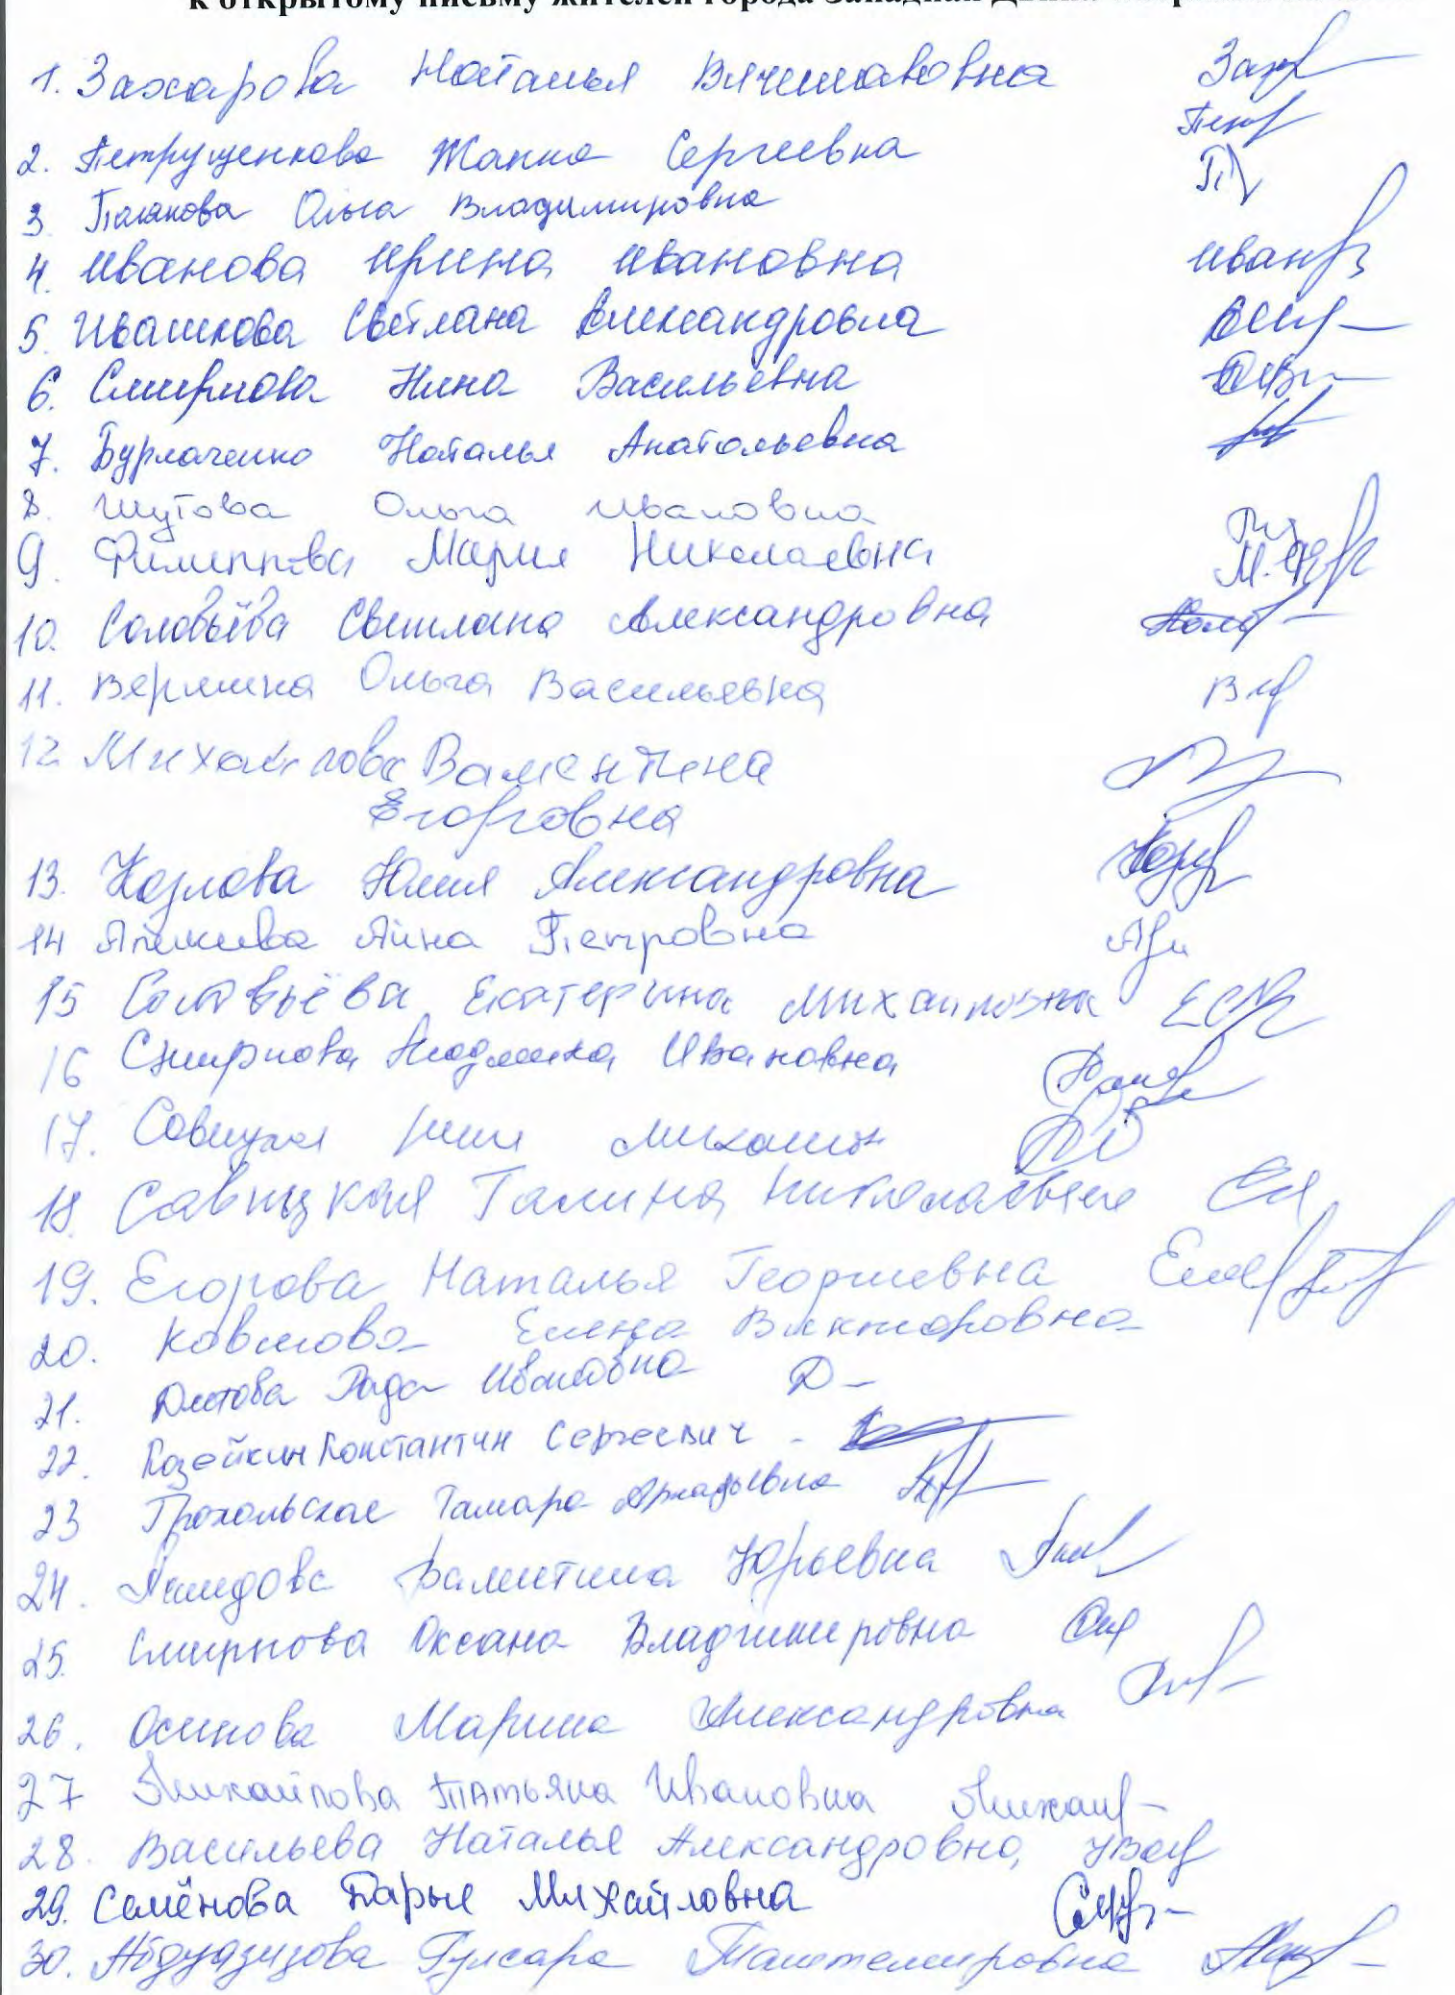 к открытому письму жителей города Западная Двина
1. Захарова Наталья Вячеславовна
2. Петрущенкова Жанна Сергеевна
3. Ольга Владимировна
4. Иванова Ирина Ивановна Иван
5. Ивашкова Светлана Александровна
6. Смирнова Нина Васильевна
7. Бурлаченко Наталья Анатольевна
8. Шутова Ольга Ивановна
9. Филиппова Мария Николаевна
10. Соловьёва Светлана Александровна
11. Ольга Васильевна
12 Михайлова Валентина
Егоровна
13. Козлова Юлия Александровна
14 Анна Петровна
15 Соловьёва Екатерина Михайловна
16 Смирнова Людмила Ивановна
17.
18. Савицкая Галина Николаевна
19. Егорова Наталья Георгиевна
20. Елена Викторовна
21. Рада Ивановна
22. Козейкин Константин Сергеевич -
23 Тамара Аркадьевна
24. Валентина Юрьевна
25. Смирнова Оксана Владимировна
26. Осипова Марина Александровна
27 Михайлова Татьяна Ивановна
28. Васильева Наталья Александровна
29. Семёнова Дарья Михайловна
30. Абдуазизова Гулсара Таштемировна